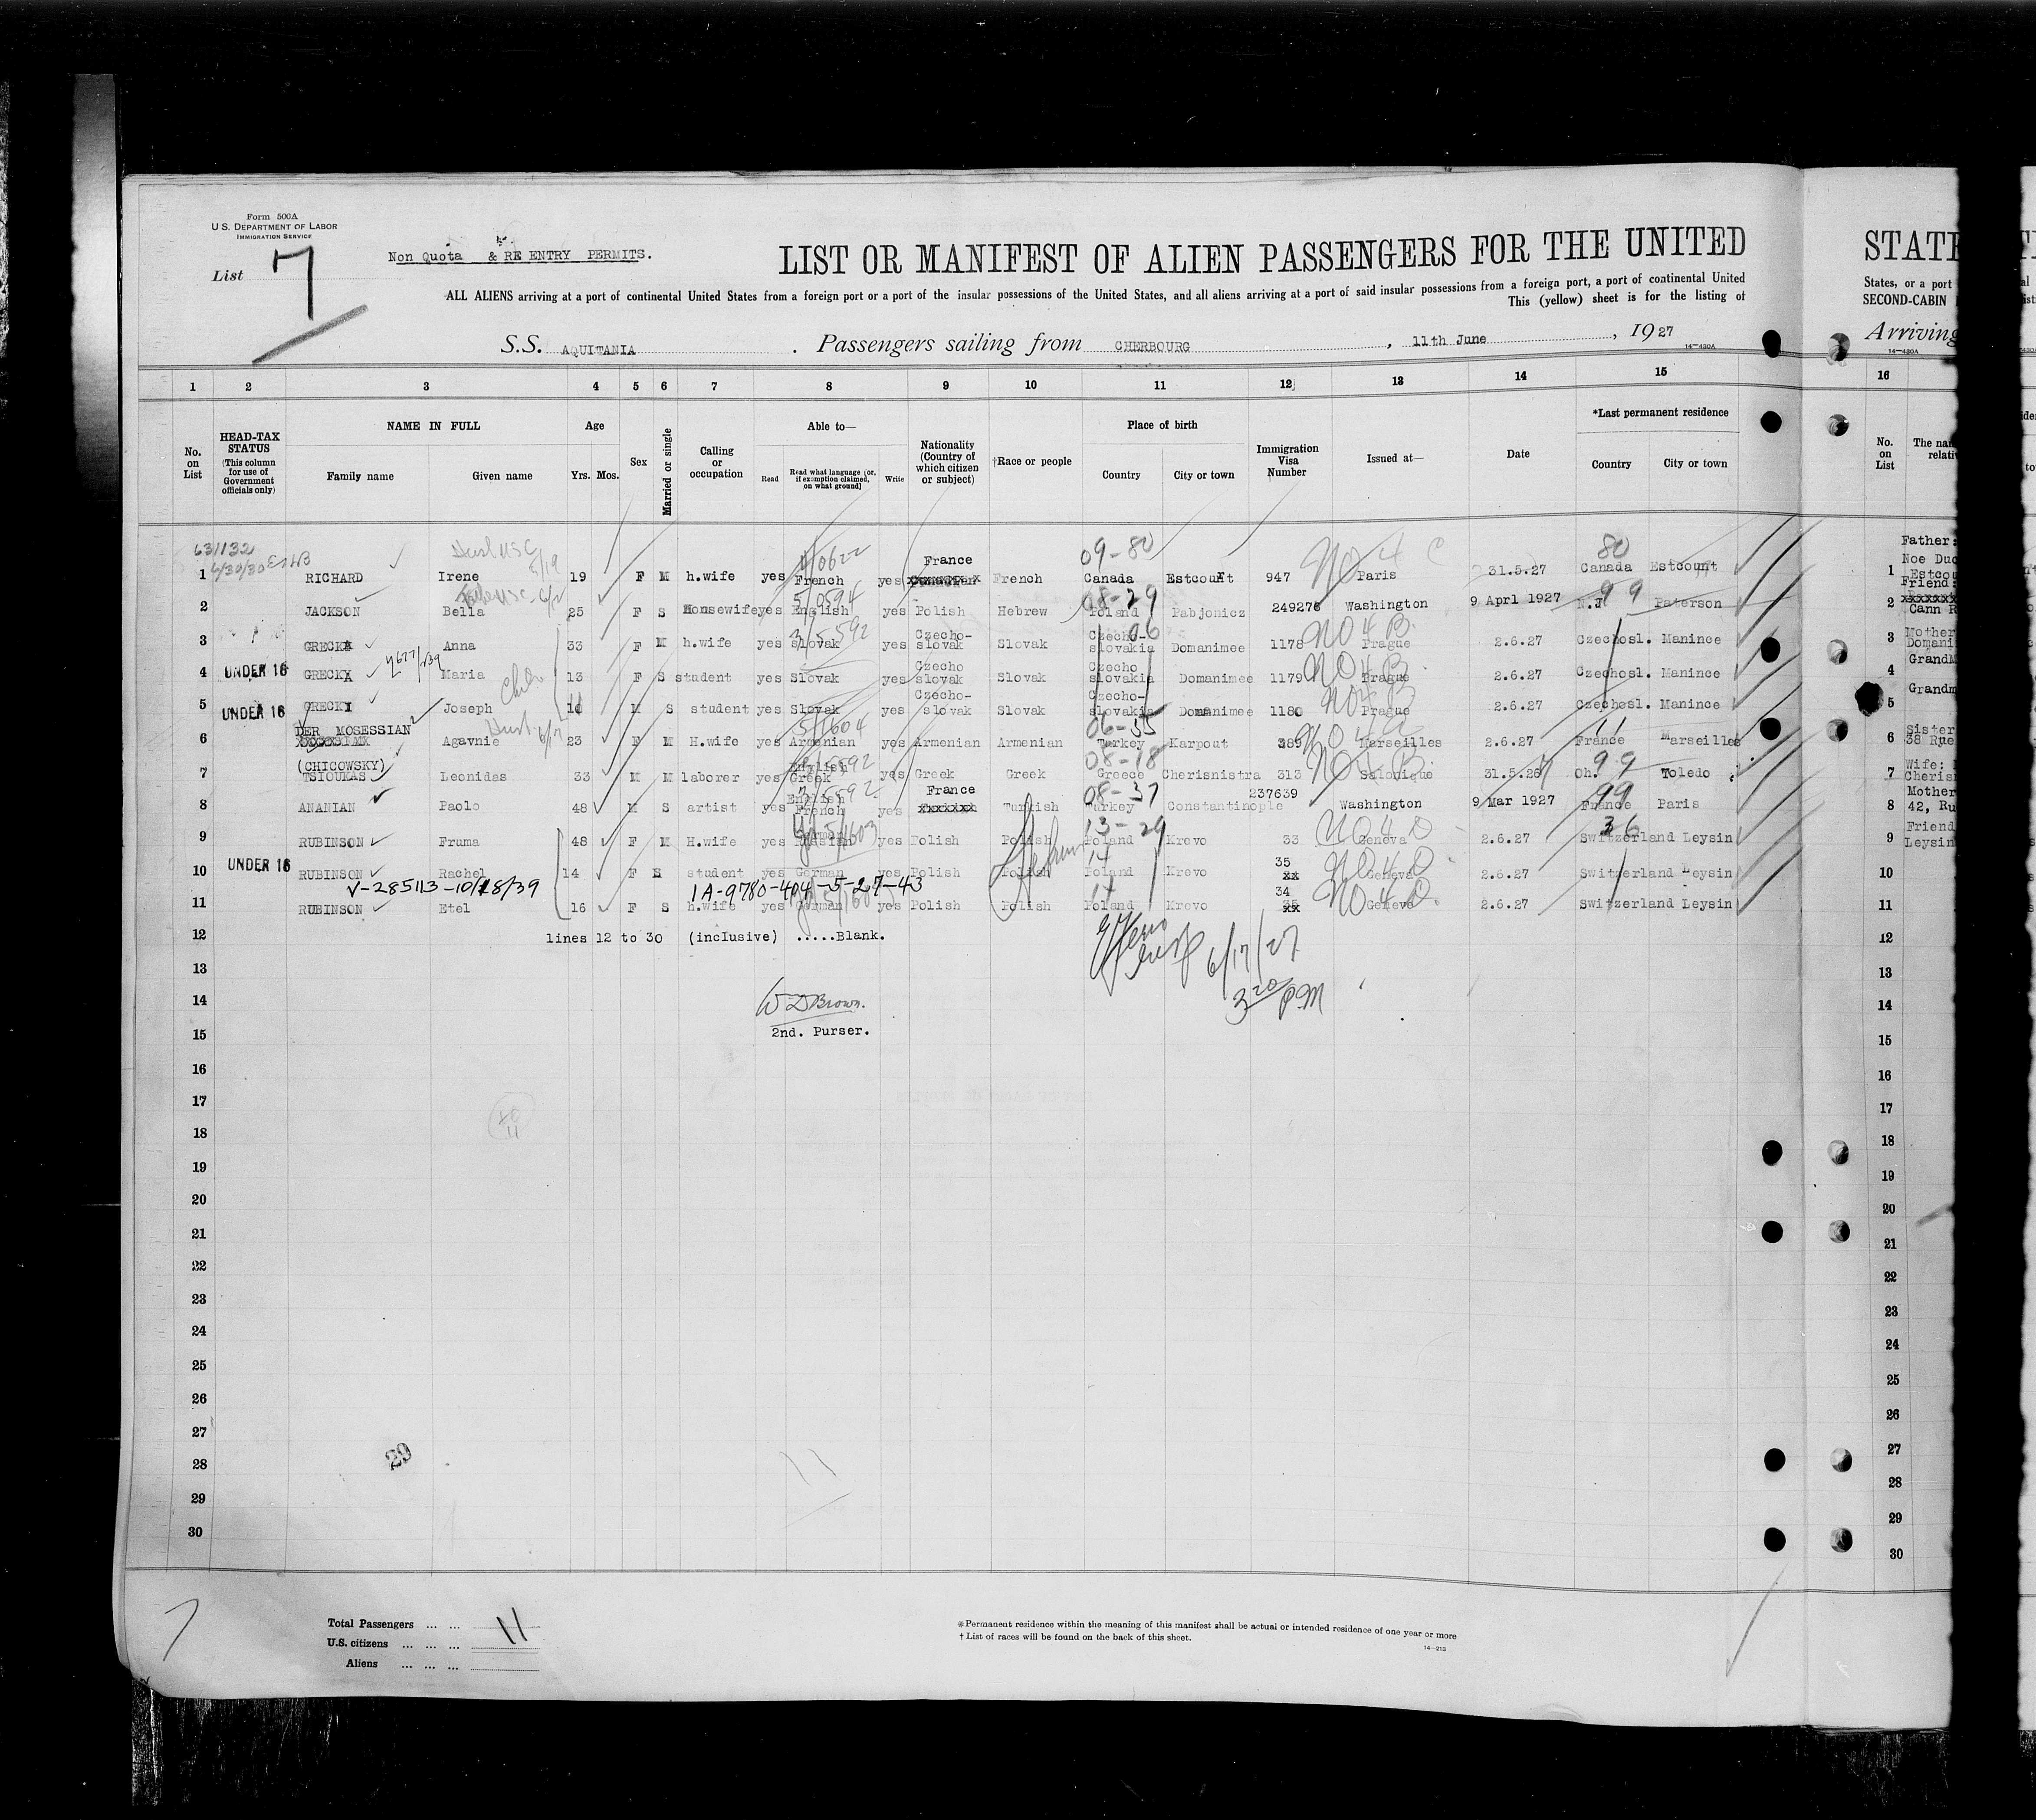 Form 500A
U.S. DEPARTMENT OF LABOR
IMMIGRATION SERVICE
List 7
Non Quota & RE ENTRY PERMITS.
LIST OR MANIFEST OF ALIEN PASSENGERS FOR THE UNITED
ALL ALIENS arriving at a port of continental United States from a foreign port or a port of the insular possessions of the United States, and all aliens arriving at a port of said insular possessions from a foreign port, a port of continental United
This (yellow) sheet is for the listing of
S.S. AQUITANIA . Passengers sailing from CHERBOURG , 11th June , 1927
14—430A
STATE
States, or a port
SECOND-CABIN
Arriving
14—430A
1 2 3 4 5 6 7 8 9 10 11 12 13 14 15 16
No. on List
HEAD-TAX STATUS
(This column for use of Government officials only)
NAME IN FULL
Family name Given name
Age
Yrs. Mos.
Sex
Married or single
Calling or occupation
Able to—
Read
Read what language (or, if exemption claimed, on what ground)
Write
Nationality (Country of which citizen or subject)
†Race or people
Place of birth
Country City or town
Immigration Visa Number
Issued at—
Date
*Last permanent residence
Country City or town
No. on List
631132
6/30/30
09-80 No 4 C 80
France
1 RICHARD Irene 19 F M h.wife yes French yes French Canada Estcourt 947 Paris 31.5.27 Canada Estcount
5/0594 08-29 99
2 JACKSON Bella 25 F S Housewife yes English yes Polish Hebrew Poland Pabjonicz 249276 Washington 9 Aprl 1927 N.J Paterson
3/5592 06 No 4 B.
3 GRECKY Anna 33 F M h.wife yes slovak yes Czecho-slovak Slovak Czecho-slovakia Domanimee 1178 Prague 2.6.27 Czechosl. Manince
No 4 B.
4 UNDER 16 GRECKY Maria 13 F S student yes Slovak yes Czecho slovak Slovak Czecho slovakia Domanimee 1179 Prague 2.6.27 Czechosl. Manince
No 4 B
5 UNDER 16 GRECKY Joseph M S student yes Slovak yes Czecho-slovak Slovak Czecho-slovakia Domanimee 1180 Prague 2.6.27 Czechosl. Manince
DER MOSESSIAN 5/1604 06-35 11
6 Agavnie 23 F M H.wife yes Armenian yes Armenian Armenian Turkey Karpout 389 Marseilles 2.6.27 France Marseilles
(CHICOWSKY) English 08-18 No 4 B. 99
7 TSIOUKAS Leonidas 33 M M laborer yes Greek yes Greek Greek Greece Cherisnistra 313 Salonique 31.5.26 Oh. Toledo
English France 08-37 237639 99
8 ANANIAN Paolo 48 M S artist yes French yes Turkish Turkey Constantinople Washington 9 Mar 1927 France Paris
German 13-29 No 4 D 36
9 RUBINSON Fruma 48 F M H.wife yes Russian yes Polish Polish Poland Krevo 33 Geneva 2.6.27 Switzerland Leysin
14 35 No 4 D.
10 UNDER 16 RUBINSON Rachel 14 F S student yes German yes Polish Polish Poland Krevo xx Geneva 2.6.27 Switzerland Leysin
V-285113-10/18/39 1A-9780-404-5-27-43 14 34 No 4 D.
11 RUBINSON Etel 16 F S h.wife yes German yes Polish Polish Poland Krevo Geneva 2.6.27 Switzerland Leysin
Hebrew
12 lines 12 to 30 (inclusive) .....Blank.
13 6/17/27
14 W D Brown. 3 20 P.M
15 2nd. Purser.
16
17
18
19
20
21
22
23
24
25
26
27
28 29
29 11
30
1 Father:
Noe Duc
Estcou
2 Friend:
Cann R
3 Mother
Domani
4 GrandM
5 Grandm
6 Sister
38 Rue
7 Wife:
Cheris
8 Mother
42, Ru
9 Friend
Leysin
10
11
12
13
14
15
16
17
18
19
20
21
22
23
24
25
26
27
28
29
30
7
Total Passengers 11
U.S. citizens
Aliens
*Permanent residence within the meaning of this manifest shall be actual or intended residence of one year or more
†List of races will be found on the back of this sheet.
14—213